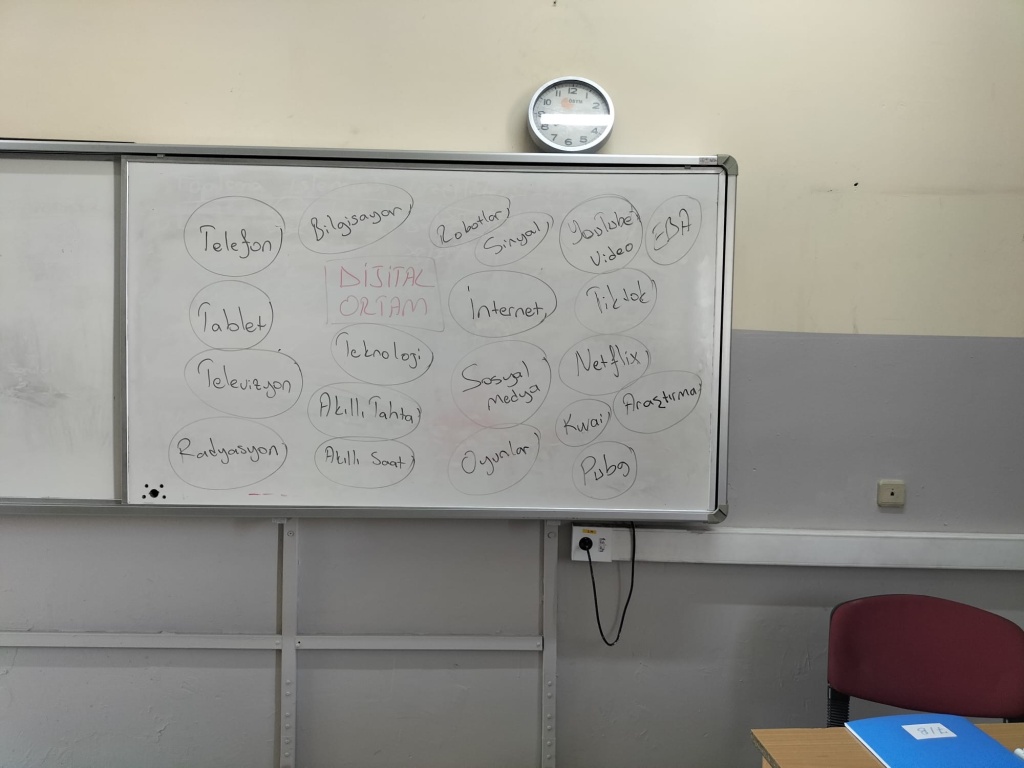 Telefon
Bilgisayar
Robotlar
Sinyal
YouTube
Video
EBA
DİJİTAL
ORTAM
Tablet
İnternet
Tiktok
Teknoloji
Televizyon
Sosyal
medya
Netflix
Akıllı Tahta
Kwai
Araştırma
Radyasyon
Akıllı Saat
Oyunlar
Pubg
12
1
2
4
5
6
7
8
10
11
7/B